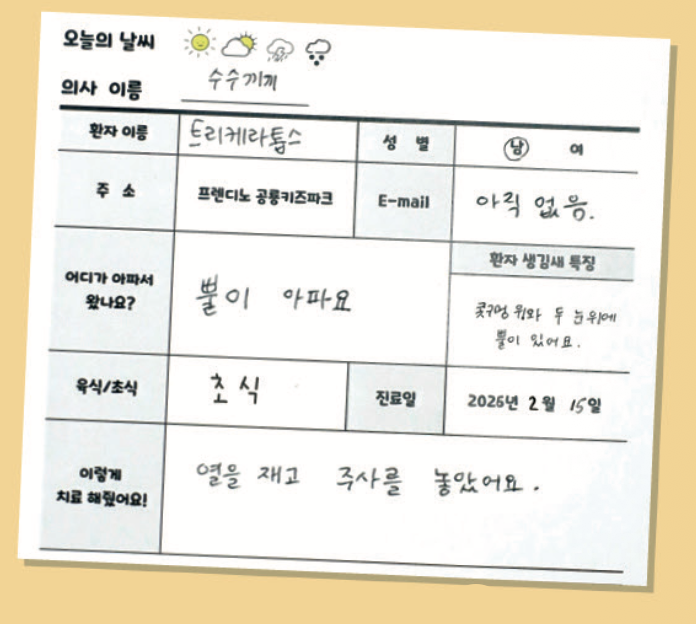 오늘의 날씨
의사 이름 수수께끼
환자 이름 트리케라톱스 성 별 남 여
주 소 프렌디노 공룡키즈파크 E-mail 아직 없음.
어디가 아파서
왔나요?
뿔이 아파요
환자 생김새 특징
콧구멍 위와 두 눈위에
뿔이 있어요.
육식/초식 초식 진료일 2026년 2월 15일
이렇게
치료 해줬어요!
열을 재고 주사를 놓았어요.